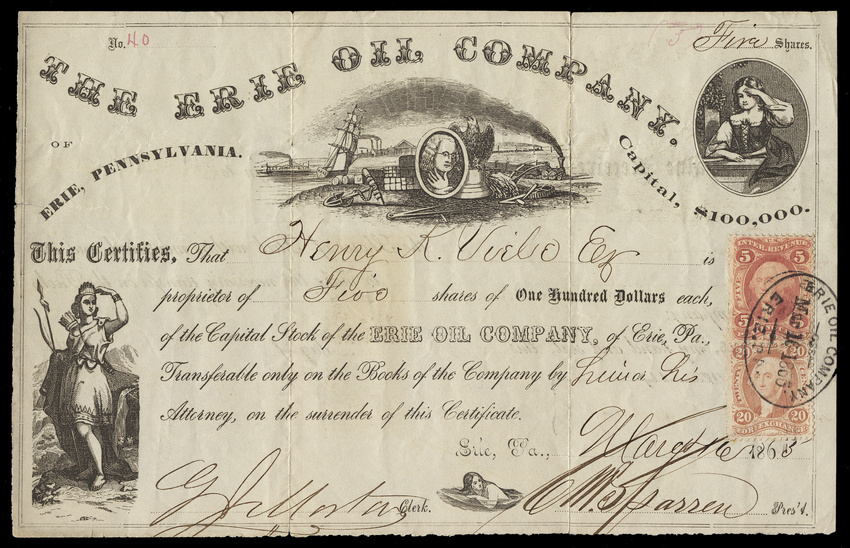 No. 40
5
Five Shares.
THE ERIE OIL COMPANY.
OF
ERIE, PENNSYLVANIA.
Capital, $100,000.
This Certifies, That Henry K. Esq is
proprietor of Five shares of One Hundred Dollars each,
of the Capital Stock of the ERIE OIL COMPANY, of Erie, Pa.,
Transferable only on the Books of the Company by his
Attorney, on the surrender of this Certificate.
Erie, Pa., March 1865
Clerk.
Pres't.
5 INTER. REVENUE 5
20 20
20 20
FOR. EXCHANGE
ERIE OIL COMPANY
ERIE, PA.